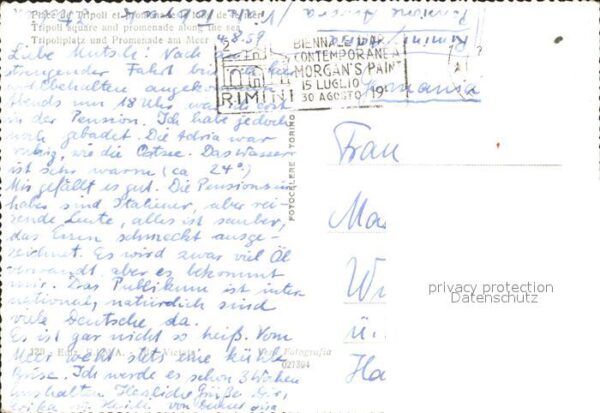 Place de Tripoli et promenade
Tripoli square and promenade along the sea
Tripoliplatz und Promenade am Meer
4.8.59
Liebe Mutsch! Nach
strengender Fahrt bin ich
wohlbehalten angekommen
Abends um 18 Uhr war ich erst
in der Pension. Ich habe jedoch
noch gebadet. Die Adria war
ruhig, wie die Ostsee. Das Wasser
ist sehr warm (ca 24°)
Mir gefällt es gut. Die Pensionsin-
haber sind Italiener, aber rei-
sende Leute, alles ist sauber,
das Essen schmeckt ausge-
zeichnet. Es wird zwar viel Öl
verwandt aber es bekommt
mir. Das Publikum ist inter
national, natürlich sind
viele Deutsche da.
Es ist gar nicht so heiß. Vom
Meer weht stets eine kühle
Brise. Ich werde es schon 3 Wochen
aushalten Herzliche Grüße
Pensione
Rimini
Germania
RIMINI
BIENNALE D'ARTE
CONTEMPORANEA
MORGAN'S PAINT
15 LUGLIO
30 AGOSTO 19
FOTOCELERE TORINO
Fran
Ma
Wi
ü.
Ha
privacy protection
Datenschutz
Fotografia
021394